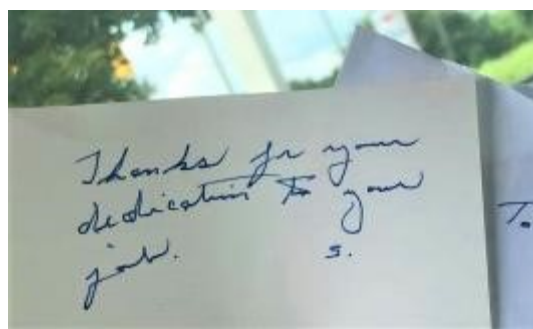 Thanks for your
dedication to your
job.
s.
To